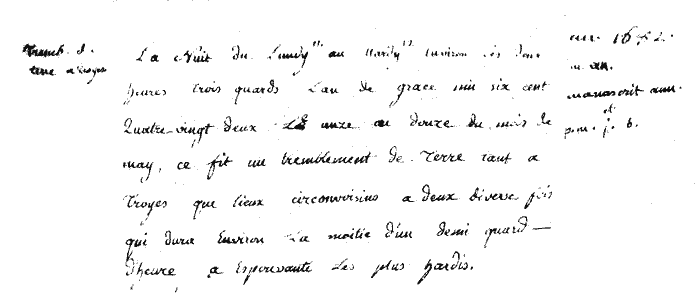 Tremb. d.
terre a Troyes
La Nuit du Lundy 11 au Mardy 12 Environ les deux
heures trois quards Lan de grace mil six cent
Quatre-vingt deux Le unze au douze du mois de
may, ce fit un tremblement de Terre tant a
Troyes que lieux circonvoisins a deux diverse fois
qui dura Environ La moitie d'un demi quard—
d'heure a Espouvante Les plus hardis.
an. 1682.
manuscrit
et